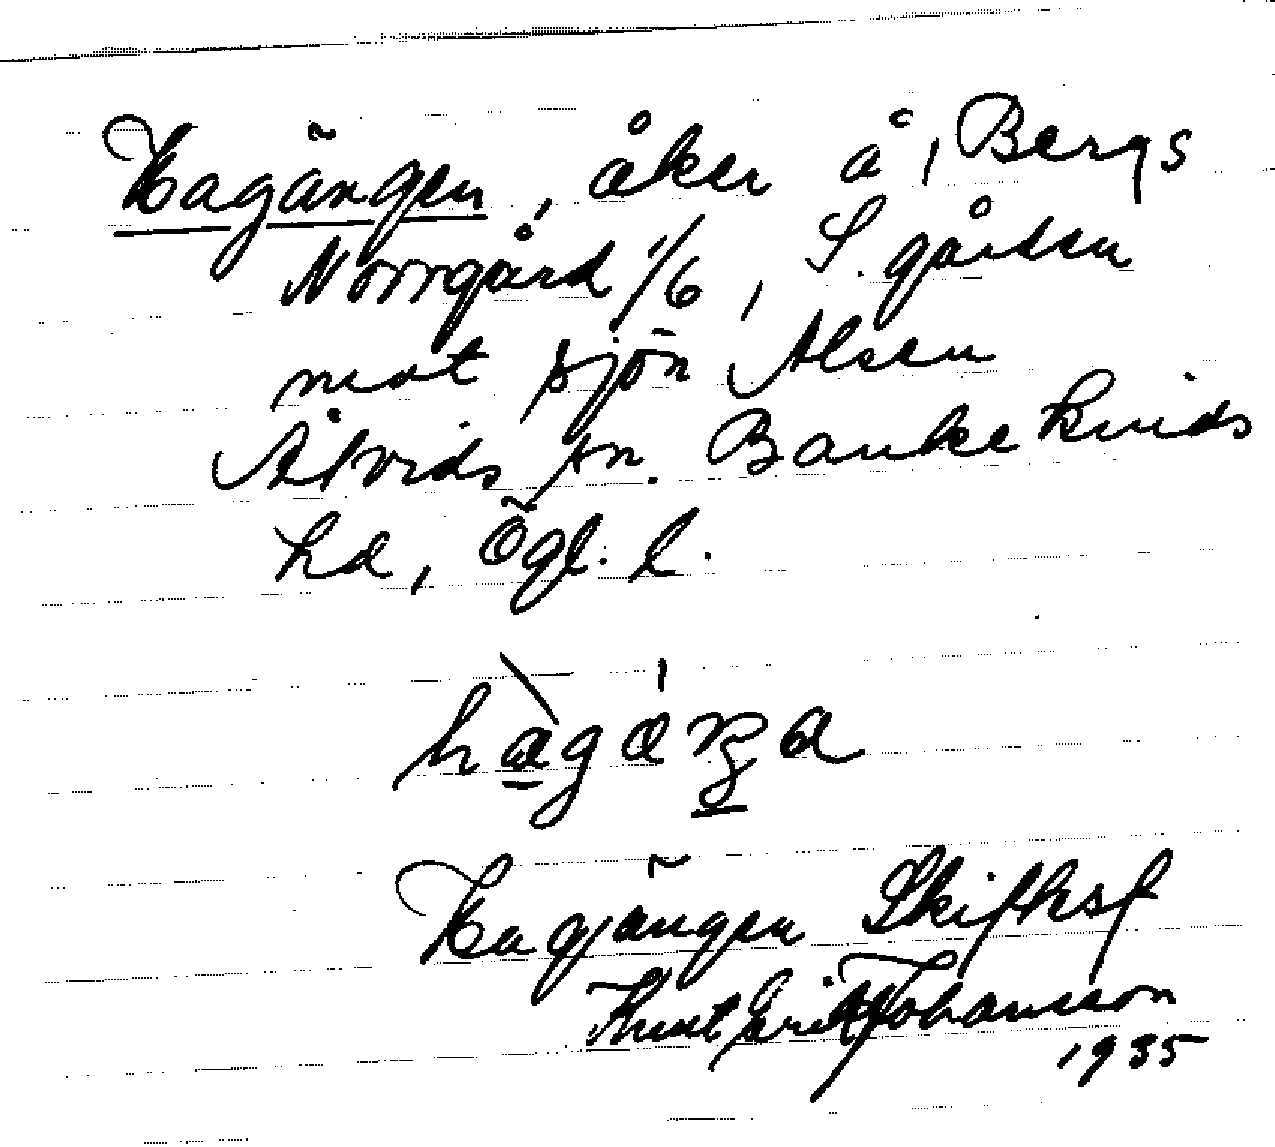 Hagängen, åker å, Bergs
Norrgård 1/6, S. gården
mot sjön Alsen
Åtvids sn. Bankekinds
hd, Ögl. l.
Hagängen Skifteskf
Knut Erik Johansson
1935